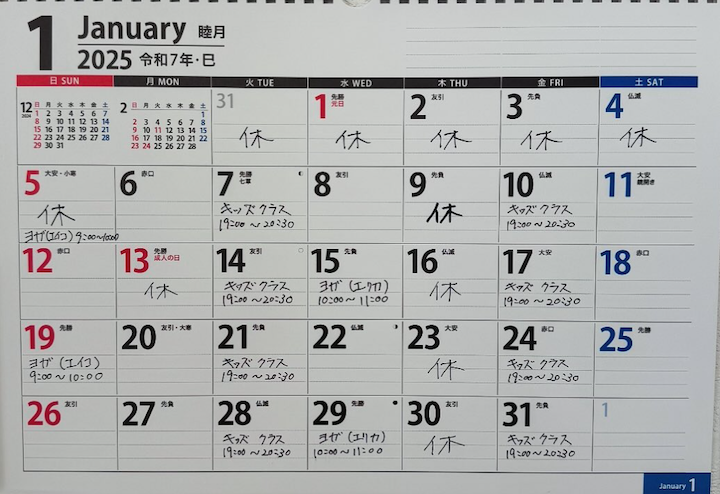 1 January 睦月
2025 令和7年・巳
日 SUN 月 MON 火 TUE 水 WED 木 THU 金 FRI 土 SAT
12 日 月 火 水 木 金 土
2024 1 2 3 4 5 6 7
8 9 10 11 12 13 14
15 16 17 18 19 20 21
22 23 24 25 26 27 28
29 30 31
2 日 月 火 水 木 金 土
1
2 3 4 5 6 7 8
9 10 11 12 13 14 15
16 17 18 19 20 21 22
23 24 25 26 27 28
31
休
1 先勝
元日
休
2 友引
休
3 先負
休
4 仏滅
休
5 大安・小寒
休
ヨガ(エイコ) 9:00~10:00
6 赤口
7 先勝
七草
キッズ クラス
19:00~20:30
8 友引
9 先負
休
10 仏滅
キッズ クラス
19:00~20:30
11 大安
鏡開き
12 赤口
13 先勝
成人の日
休
14 友引
キッズ クラス
19:00~20:30
15 先負
ヨガ(エリカ)
10:00~11:00
16 仏滅
休
17 大安
キッズ クラス
19:00~20:30
18 赤口
19 先勝
ヨガ(エイコ)
9:00~10:00
20 友引・大寒
21 先負
キッズ クラス
19:00~20:30
22 仏滅
23 大安
休
24 赤口
キッズ クラス
19:00~20:30
25 先勝
26 友引
27 先負
28 仏滅
キッズ クラス
19:00~20:30
29 先勝
ヨガ(エリカ)
10:00~11:00
30 友引
休
31 先負
キッズ クラス
19:00~20:30
1
January 1